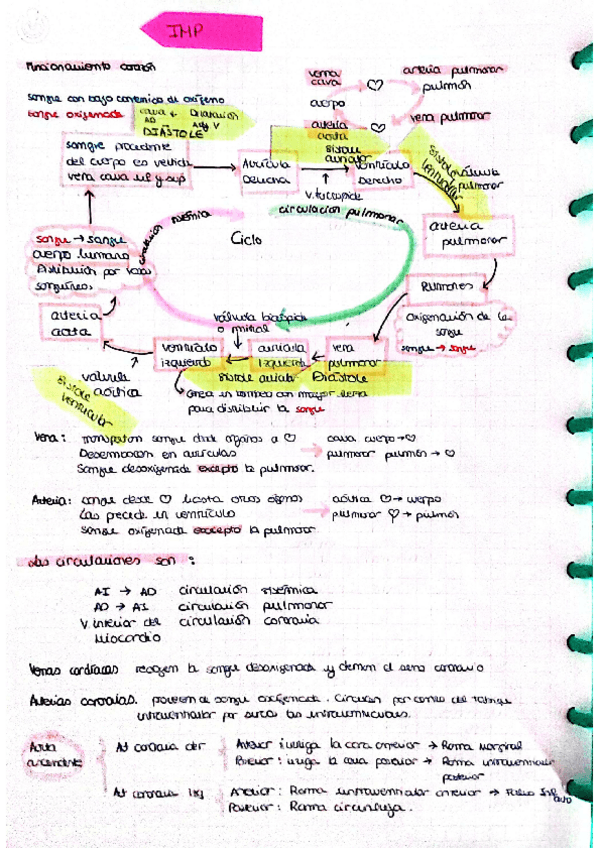 IMP
Funcionamiento corazón
vena cava
arteria pulmonar
cuerpo
pulmón
arteria aorta
vena pulmonar
sangre con bajo contenido de oxígeno
sangre oxigenada
DIÁSTOLE
sangre procedente
del cuerpo es vertida
vena cava inf y sup
Aurícula
Derecha
Sístole
auricular
v. tricúspide
ventrículo
Derecho
Sístole
ventricular
válvula
pulmonar
arteria
pulmonar
Pulmones
Oxigenación de la
sangre
sangre → sangre
circulación sistémica
circulación pulmonar
Ciclo
sangre → sangre
cuerpo humano
Distribución por vasos
sanguíneos
arteria
aorta
válvula
aórtica
Sístole
ventricular
ventrículo
izquierdo
válvula bicúspide
o mitral
aurícula
Izquierda
vena
pulmonar
Sístole auricular
DIÁSTOLE
Crea un bombeo con mayor fuerza
para distribuir la sangre
Vena: transportan sangre desde órganos a ♡ → cava cuerpo → ♡
Desembocan en aurículas → pulmonar pulmón → ♡
Sangre desoxigenada excepto la pulmonar.
Arteria: sangre desde ♡ hasta otros órganos → aórtica ♡ → cuerpo
Las precede un ventrículo → pulmonar ♡ → pulmón
Sangre oxigenada excepto la pulmonar.
Las circulaciones son :
AI → AD circulación sistémica
AD → AI circulación pulmonar
V interior del circulación coronaria
miocardio
Venas cardíacas recogen la sangre desoxigenada y drenan al seno coronario
Arterias coronarias. proveen de sangre oxigenada. Circulan por
interventricular por surcos
Aorta
ascendente
At coronaria der
Anterior irriga la cara anterior → Rama Marginal
Posterior: irriga la cara posterior → Rama interventricular
posterior
At coronaria Izq
Anterior: Rama interventricular anterior →
Posterior: Rama circunfleja.